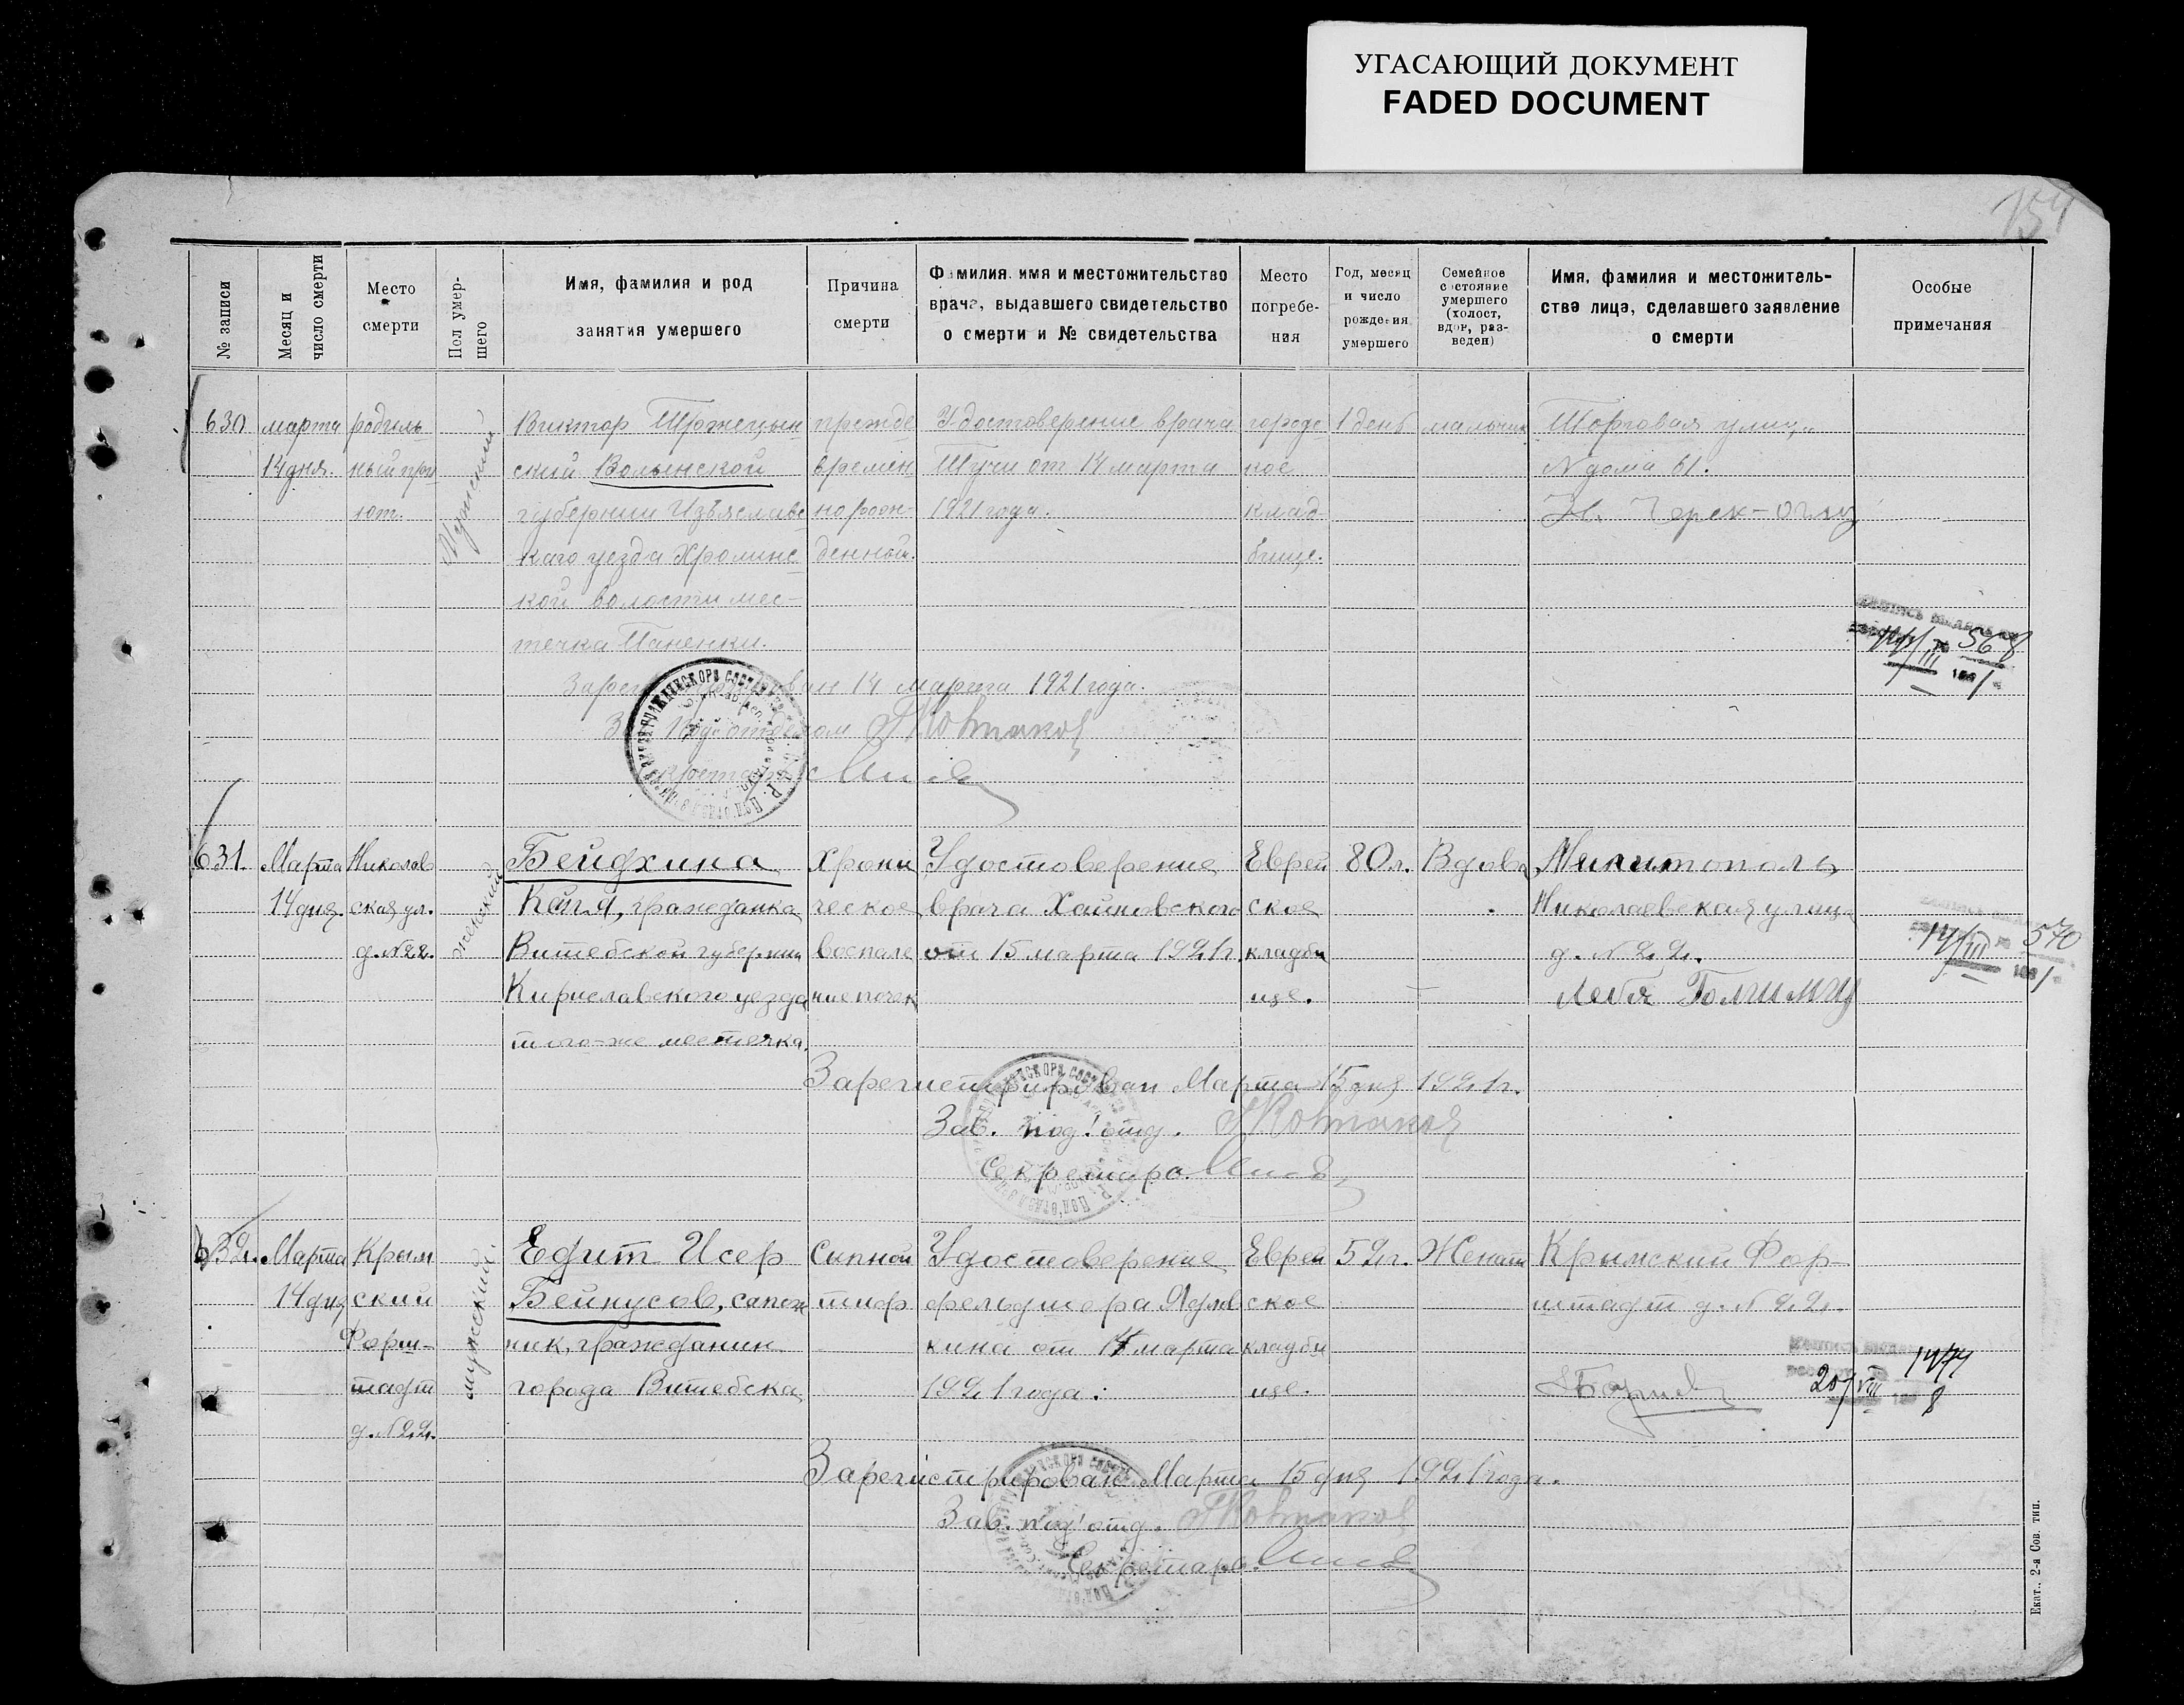 УГАСАЮЩИЙ ДОКУМЕНТ
FADED DOCUMENT
154
№ записи
Месяц и
число смерти
Место
смерти
Пол умер-
шего
Имя, фамилия и род
занятия умершего
Причина
смерти
Фамилия, имя и местожительство
врача, выдавшего свидетельство
о смерти и № свидетельства
Место
погребе-
ния
Год, месяц
и число
рождения
умершего
Семейное
состояние
умершего
(холост,
вдов, раз-
веден)
Имя, фамилия и местожитель-
ства лица, сделавшего заявление
о смерти
Особые
примечания
630
марта
14 дня.
родиль
ный при
ют.
Мужской
Виктор
ский Волынской
губернии Изъяславс
каго уезда
кой волости мес-
течка
прежде
времен
но рож-
денный.
Удостоверение врача
от 14 марта
1921 года.
городс
кое
клад-
бище.
1 день
мальчик
Торговая улиц.
N дома 61.
568
14 марта 1921 года.
631.
Марта
14 дня.
Николаев
ская ул.
д. N 22.
женский
Бейдхина
Капля, гражданка
Витебской губернии
Кириславского уезда
того-же местечка.
Хрони
ческое
воспале
ние почек
Удостоверение
врача Хайновского
от 15 марта 1921 г.
Еврей
ское
кладби
ще.
80 л.
Вдова
Мелитополь
Николаевская улица
д. N 22.
14/III 570
Зарегистрирован Марта 15 дня 1921 г.
Зав. под'отд.
Секретарь.
632.
Марта
14 дня
Крым
ский
Форш-
тадт
д. N 22.
мужской.
Ефит Исер
Бейнусов, сапож
ник, гражданин
города Витебска
Сыпной
тиф
Удостоверение
фельдшера
кина от 14 марта
1921 года.
Еврей
ское
кладби
ще.
52 г.
Женат
Крымский Фор-
штадт д. N 22.
20/VIII 1474
8
Зарегистрирован Марта 15 дня 1921 года.
Зав. под'отд.
Секретарь.
Екат., 2-я Сов. тип.